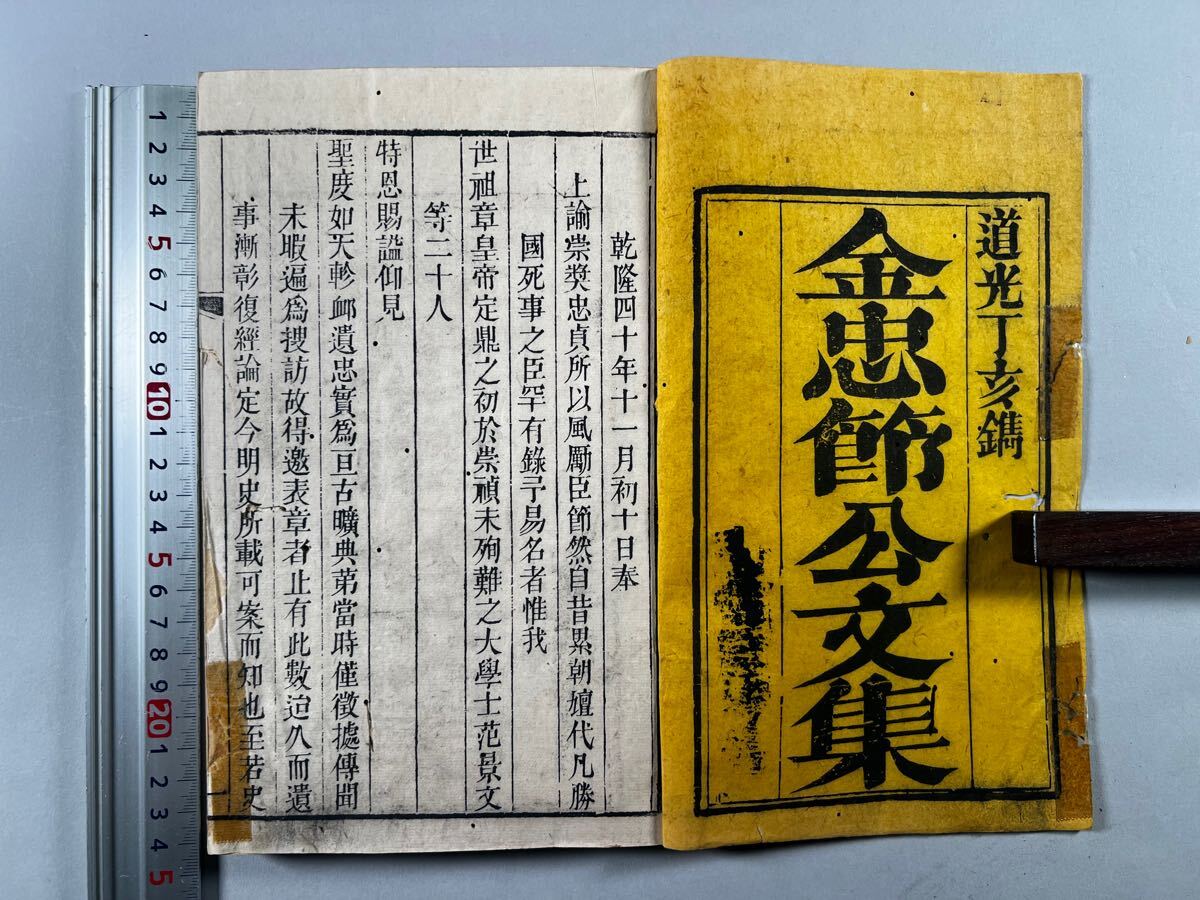 道光丁亥鐫
金忠節公文集
乾隆四十年十一月初十日奉
上諭崇奬忠貞所以風勵臣節然自昔累朝嬗代凡勝
國死事之臣罕有錄予易名者惟我
世祖章皇帝定鼎之初於崇禎末殉難之大學士范景文
等二十人
特恩賜諡仰見
聖度如天軫卹遺忠實爲亘古曠典第當時僅徵據傳聞
未暇遍爲搜訪故得邀表章者止有此數迨久而遺
事漸彰復經論定今明史所載可案而知也至若史
一
1
2
3
4
5
6
7
8
9
10
1
2
3
4
5
6
7
8
9
20
1
2
3
4
5